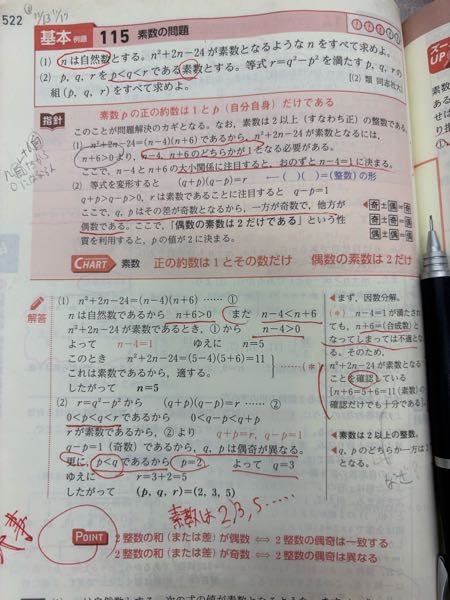 522
11/13 11/17
基本 例題 115 素数の問題
(1) nは自然数とする。n²+2n-24が素数となるようなnをすべて求めよ。
(2) p, q, rをp<q<rである素数とする。等式r=q²-p²を満たすp, q, rの
組(p, q, r)をすべて求めよ。
[(2) 類 同志社大]
指針
素数pの正の約数は1とp(自分自身)だけである
このことが問題解決のカギとなる。なお、素数は2以上(すなわち正)の整数である。
(1) n²+2n-24=(n-4)(n+6)であるから、n²+2n-24が素数となるには、
n+6>0より、n-4, n+6のどちらかが1となる必要がある。
ここで、n-4とn+6の大小関係に注目すると、おのずとn-4=1に決まる。
(2) 等式を変形すると (q+p)(q-p)=r ← ( )( )=(整数)の形
q+p>q-p>0, rは素数であることに注目すると q-p=1
ここで、q, pはその差が奇数となるから、一方が奇数で、他方が
偶数である。ここで、「偶数の素数は2だけである」という性
質を利用すると、pの値が2に決まる。
◀奇±奇=偶
奇±偶=奇
偶±偶=偶
CHART 素数 正の約数は1とその数だけ 偶数の素数は2だけ
解答
(1) n²+2n-24=(n-4)(n+6) …… ①
nは自然数であるから n+6>0 また n-4<n+6
n²+2n-24が素数であるとき、①から n-4>0
よって n-4=1 ゆえに n=5
このとき n²+2n-24=(5-4)(5+6)=11
これは素数であるから、適する。
……(*)
したがって n=5
(2) r=q²-p²から (q+p)(q-p)=r …… ②
0<p<q<rであるから 0<q-p<q+p
rが素数であるから、②より q+p=r, q-p=1
q-p=1(奇数)であるから、q, pは偶奇が異なる。
更に、p<qであるから p=2 よって q=3
ゆえに r=3+2=5
したがって (p, q, r)=(2, 3, 5)
◀まず、因数分解。
(*) n-4=1が満たされ
ても、n+6=(合成数)と
なってしまっては不適とな
る。そのため、
n²+2n-24が素数となる
ことを確認している
[n+6=5+6=11(素数)の
確認だけでも十分である]
◀素数は2以上の整数。
◀q, pのどちらか一方は2
となる。
なぜ
素数は 2, 3, 5 ……
大事
POINT
2整数の和(または差)が偶数 ⟺ 2整数の偶奇は一致する
2整数の和(または差)が奇数 ⟺ 2整数の偶奇は異なる